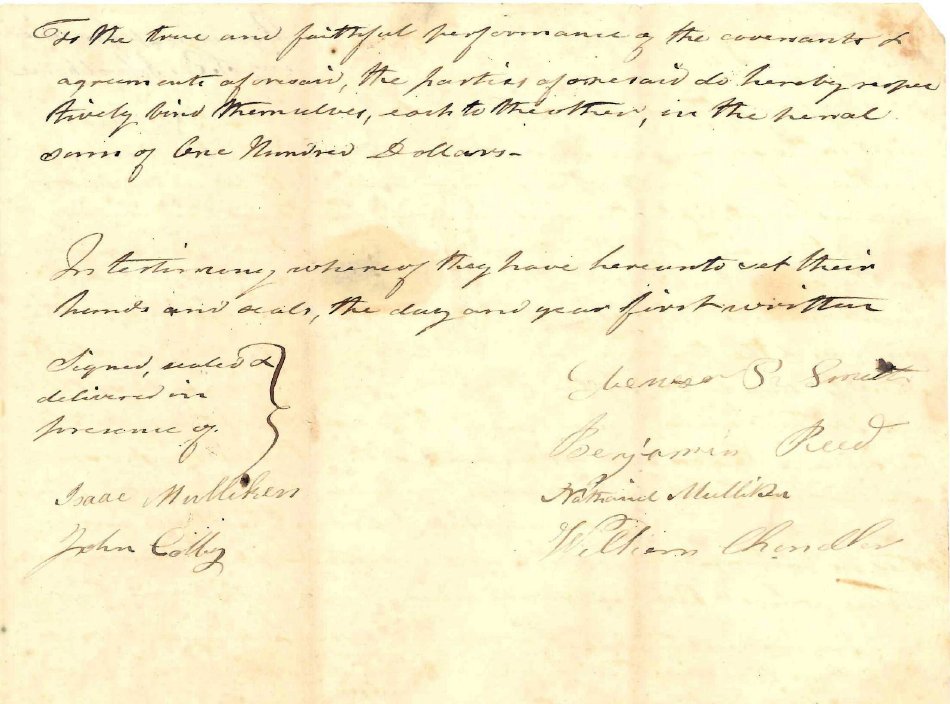 To the true and faithful performance of the covenants &
agreements aforesaid, the parties aforesaid do hereby respec
tively bind themselves, each to the other, in the penal
sum of One Hundred Dollars-
In testimony whereof they have hereunto set their
hands and seals, the day and year first written
Signed, sealed &
delivered in
presence of
Isaac Mulliken
John Colby
Ebenezer S. Smith
Benjamin Reed
Nathaniel Mulliken
William Chandler